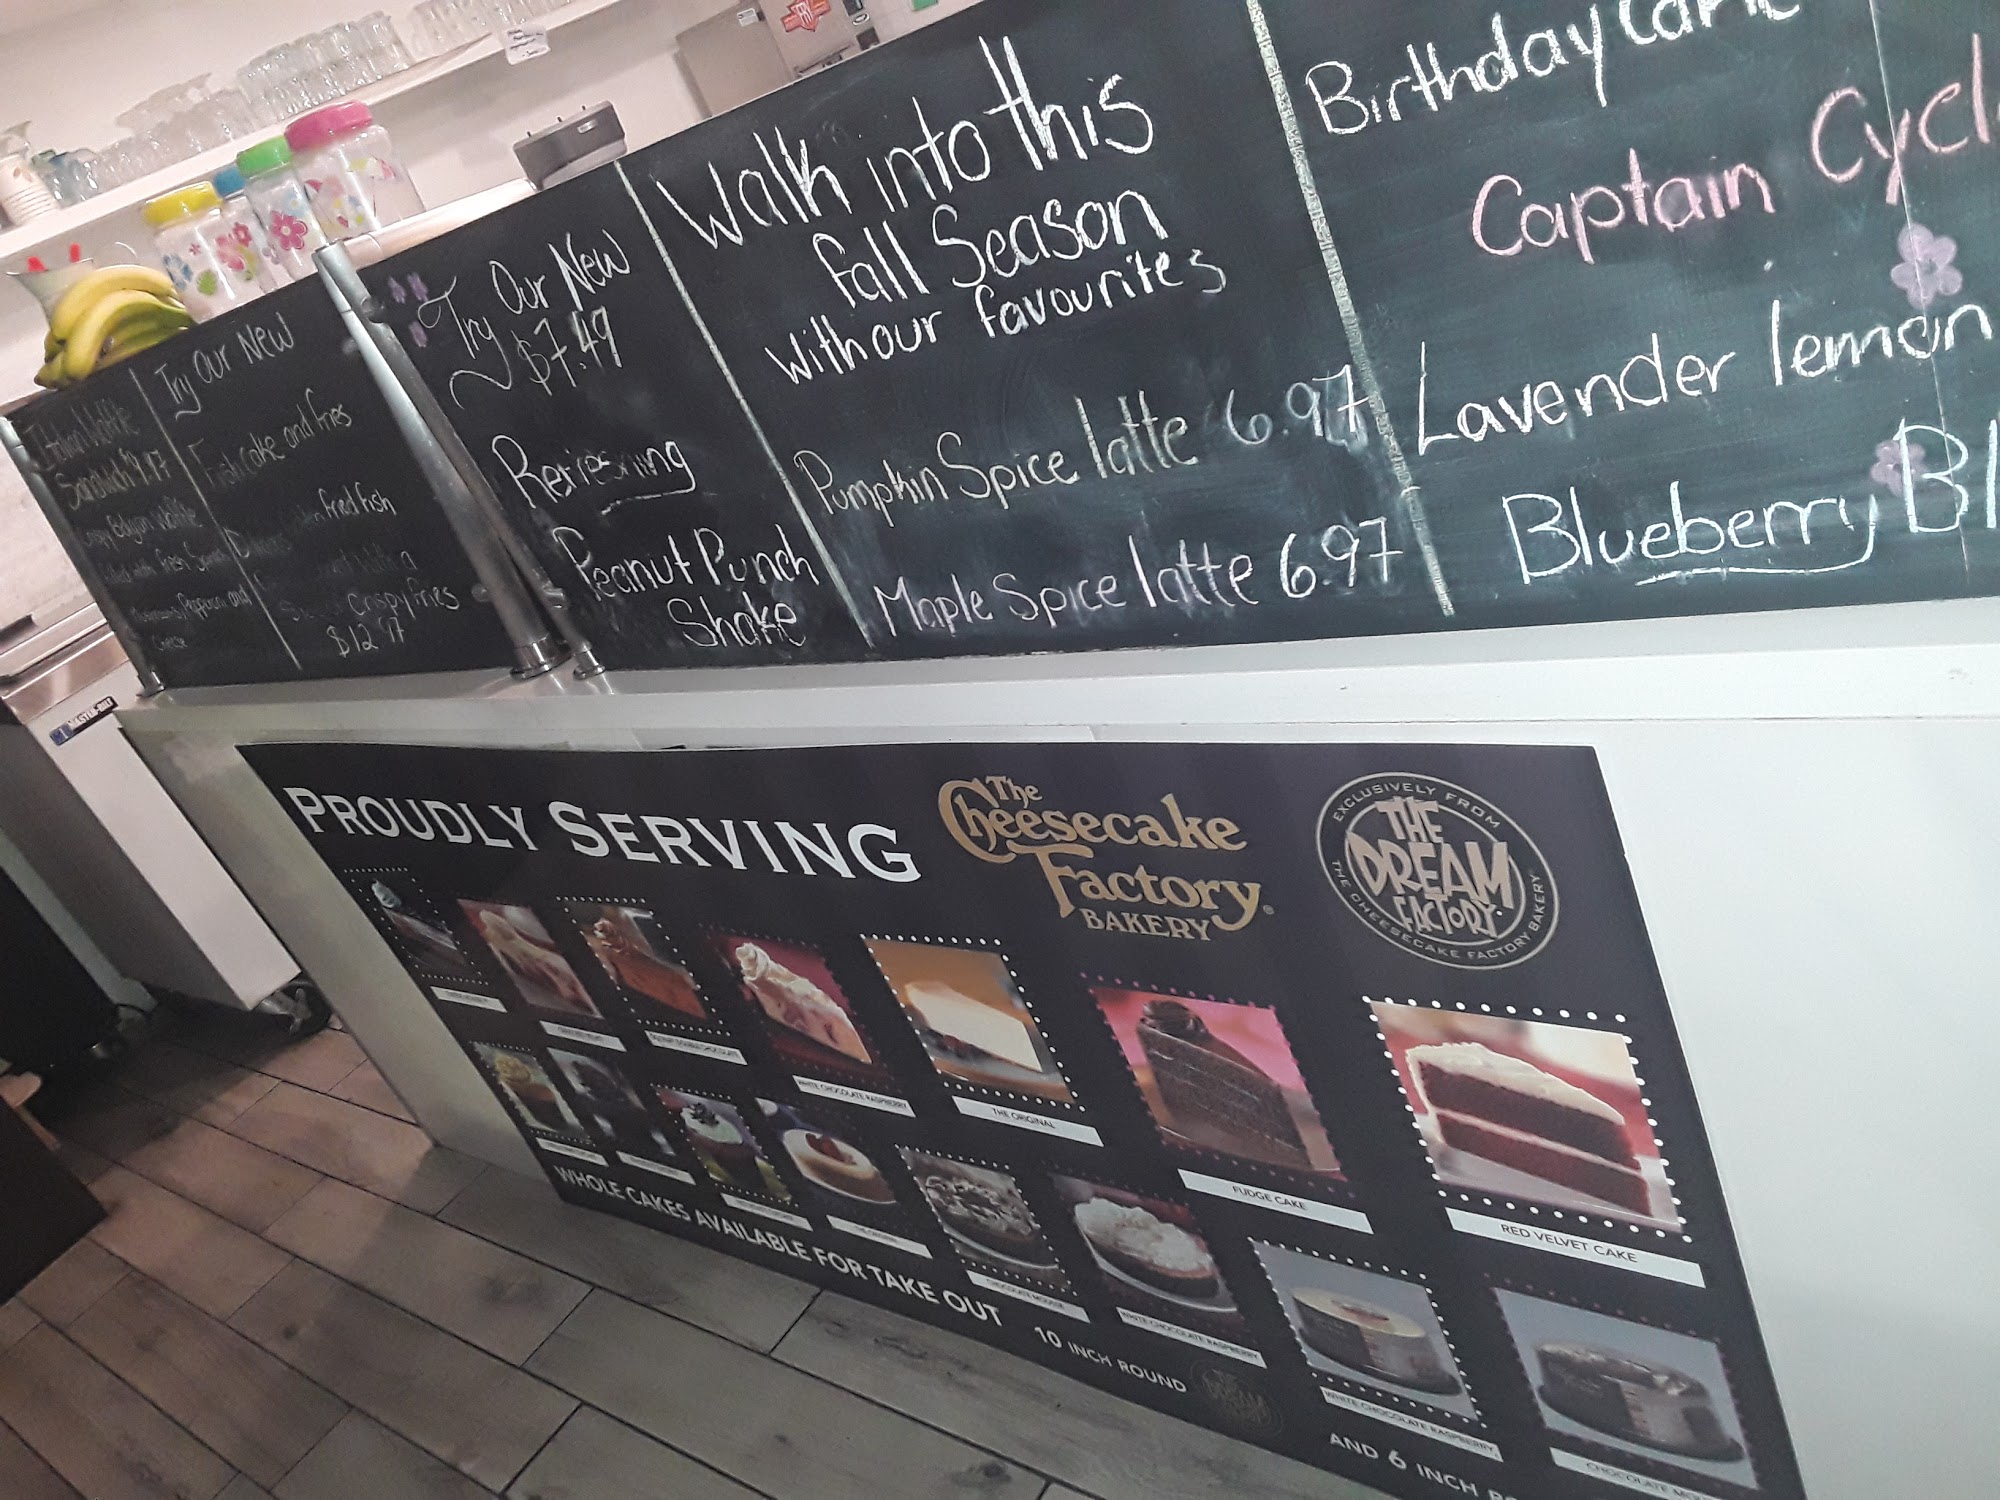 Italian Waffle
Sandwich 9.97
Crispy Belgian Waffle
filled with fresh
Pepperoni and
Cheese
Try Our New
Fishcake and fries
fried fish
with a
Crispy fries
$12.97
Try Our New
$7.49
Refreshing
Peanut Punch
Shake
Walk into this
fall Season
with our favourites
Pumpkin Spice latte 6.97
Maple Spice latte 6.97
Birthday Cake
Captain
Lavender lemon
Blueberry
MASTER-BILT
PROUDLY SERVING
The
Cheesecake
Factory
BAKERY
EXCLUSIVELY FROM
THE
DREAM
FACTORY
THE CHEESECAKE FACTORY BAKERY
WHITE CHOCOLATE RASPBERRY
THE ORIGINAL
FUDGE CAKE
RED VELVET CAKE
CHOCOLATE MOUSSE
WHITE CHOCOLATE RASPBERRY
WHITE CHOCOLATE RASPBERRY
WHOLE CAKES AVAILABLE FOR TAKE OUT
10 INCH ROUND
AND 6 INCH